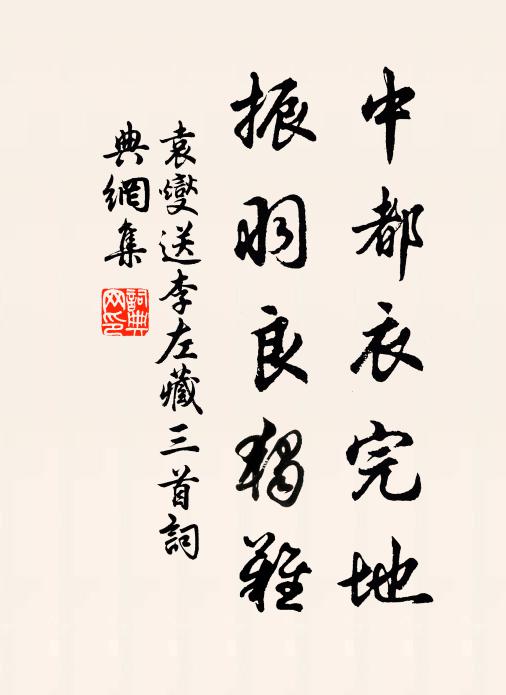 中都衣完地
振羽良獨難
袁燮送李左藏三首詞
典網集
詞典網印